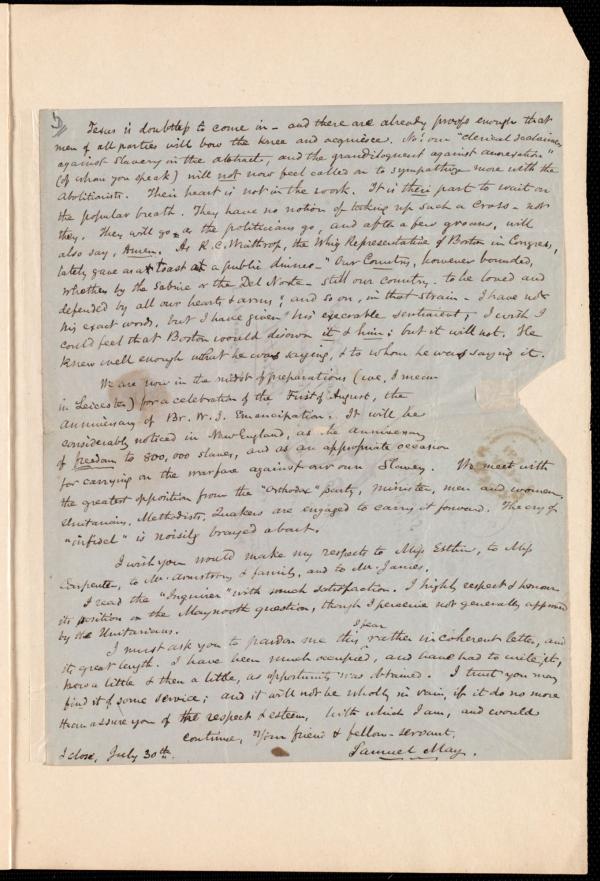 5
Texas is doubtless to come in – and there are already proofs enough that
men of all parties will bow the knee and acquiesce. No! our "clerical declaimers
against Slavery in the abstract, and the grandiloquent against annexation"
(of whom you speak) will not now feel called on to sympathize more with the
Abolitionists. Their heart is not in the work. It is their part to wait on
the popular breath. They have no notion of taking up such a Cross – not
they. They will go as the politicians go, and after a few groans, will
also say, Amen. As R. C. Winthrop, the Whig Representative of Boston in Congress,
lately gave as a toast at a public dinner – "Our Country, however bounded,
whether by the Sabine or the Del Norte – still our country – to be loved and
defended by all our hearts & arms; and so on, in that strain – I have not
his exact words, but I have given his execrable sentiment, – I wish I
could feel that Boston would disown it & him; but it will not. He
knew well enough what he was saying, & to whom he was saying it.
We are now in the midst of preparations (we, I mean
in Leicester) for a celebration of the First of August, the
anniversary of Br. W. I. Emancipation. It will be
considerably noticed in New England, as the anniversary
of freedom to 800,000 slaves, and as an appropriate occasion
for carrying on the warfare against our own Slavery. We meet with
the greatest opposition from the "Orthodox" party, minister, men and women,
Unitarians, Methodists, Quakers are engaged to carry it forward. The cry of
"infidel" is noisily brayed about.
I wish you would make my respects to Miss Estlin, to Miss
Carpenter, to Mr. Armstrong & family, and to Mr. James.
I read the "Inquirer" with much satisfaction. I highly respect & honour
its position on the Maynooth question, though I perceive not generally approved
by the Unitarians.
I must ask you to pardon me this, I fear rather incoherent letter, and
its great length. I have been much occupied, and have had to write it,
now a little & then a little, as opportunity was obtained. I trust you may
find it of some service; and it will not be wholly in vain, if it do no more
than assure you of the respect & esteem, with which I am, and would
continue, Your friend & fellow-servant,
I close, July 30th. Samuel May.